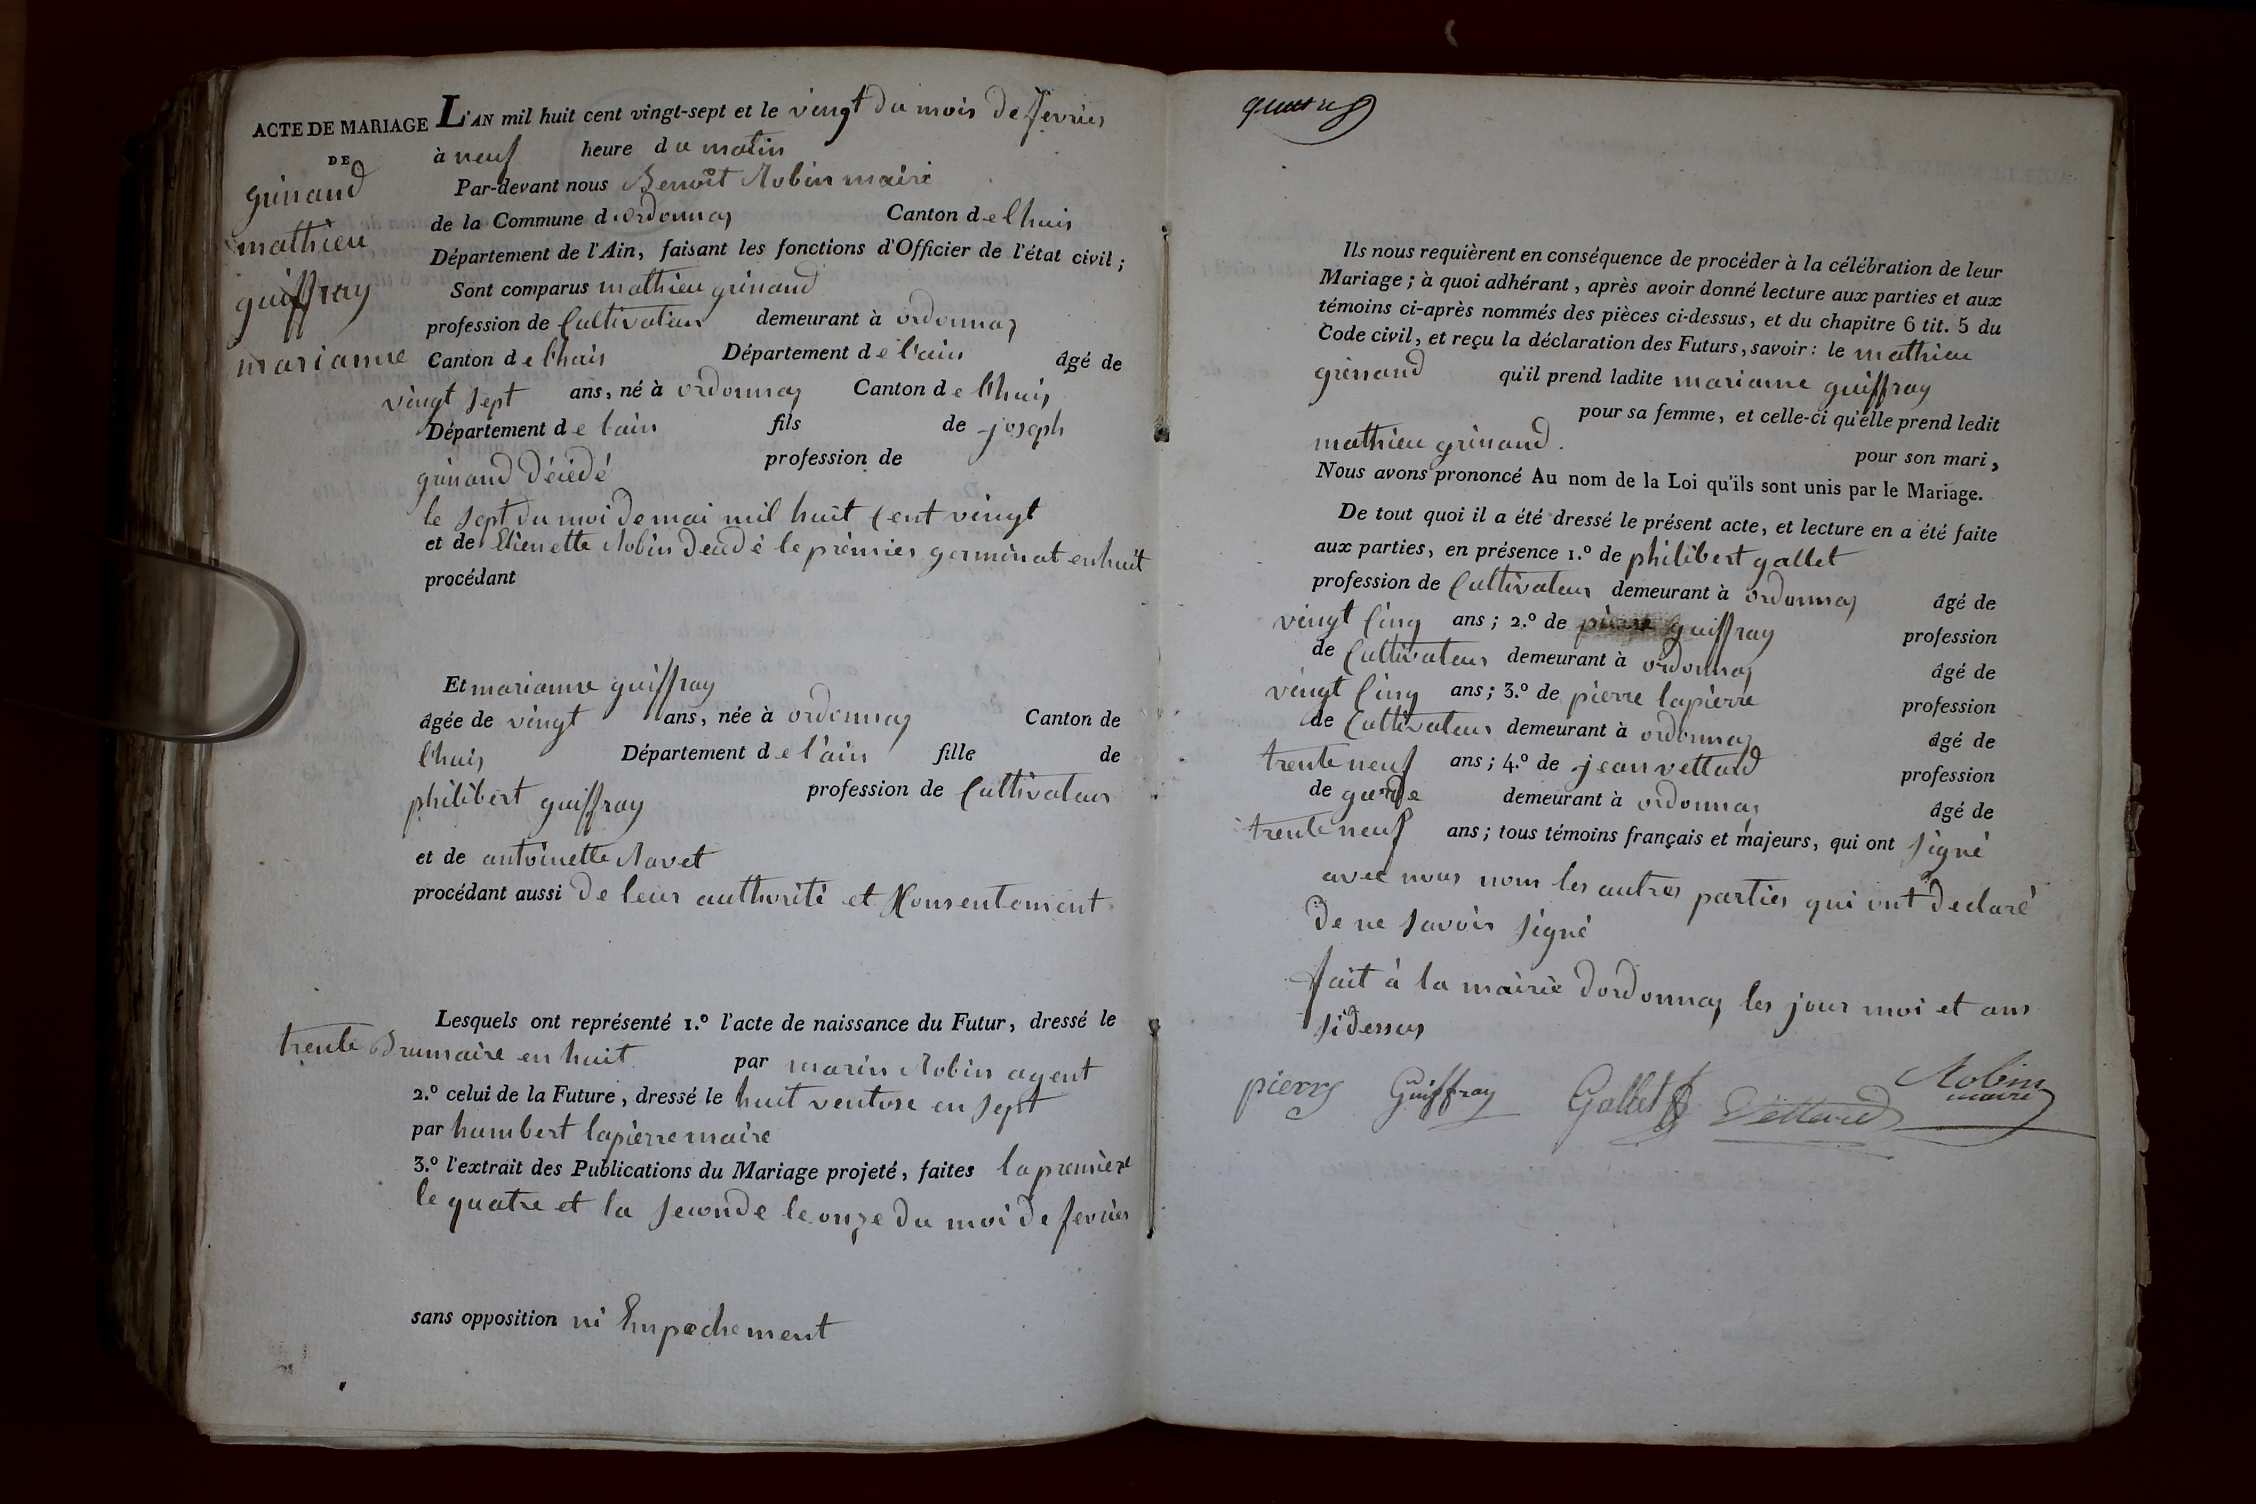 ACTE DE MARIAGE
DE
grinand
mathieu
guiffray
marianne
L'AN mil huit cent vingt-sept et le vingt du mois de fevrier
à neuf heure du matin
Par-devant nous Benoît Robin maire
de la Commune d'ordonnaz Canton de lhuis
Département de l'Ain, faisant les fonctions d'Officier de l'état civil;
Sont comparus mathieu grinand
profession de Cultivateur demeurant à ordonnaz
Canton de lhuis Département de l'ain âgé de
vingt sept ans, né à ordonnaz Canton de lhuis
Département de lain fils de joseph
grinand décédé profession de
le sept du moi de mai mil huit cent vingt
et de Etienette Robin décédé le premier germinat en huit
procédant
Et marianne guiffray
âgée de vingt ans, née à ordonnaz Canton de
lhuis Département de l'ain fille de
philibert guiffray profession de Cultivateur
et de antoinette Ravet
procédant aussi de leur authorité et Konsentement
Lesquels ont représenté 1.º l'acte de naissance du Futur, dressé le
trente Brumaire en huit par marin Robin agent
2.º celui de la Future, dressé le huit ventose en sept
par humbert lapierre maire
3.º l'extrait des Publications du Mariage projeté, faites la premiere
le quatre et la seconde le onze du moi de fevrier
sans opposition ni Empechement
quatre
Ils nous requièrent en conséquence de procéder à la célébration de leur
Mariage; à quoi adhérant, après avoir donné lecture aux parties et aux
témoins ci-après nommés des pièces ci-dessus, et du chapitre 6 tit. 5 du
Code civil, et reçu la déclaration des Futurs, savoir: le mathieu
grinand qu'il prend ladite marianne guiffray
pour sa femme, et celle-ci qu'elle prend ledit
mathieu grinand. pour son mari,
Nous avons prononcé Au nom de la Loi qu'ils sont unis par le Mariage.
De tout quoi il a été dressé le présent acte, et lecture en a été faite
aux parties, en présence 1.º de philibert gallet
profession de Cultivateur demeurant à ordonnaz âgé de
vingt cinq ans; 2.º de pierre guiffray profession
de Cultivateur demeurant à ordonnaz âgé de
vingt cinq ans; 3.º de pierre lapierre profession
de Cultivateur demeurant à ordonnaz âgé de
trente neuf ans; 4.º de jean vettard profession
de garde demeurant à ordonnaz âgé de
trente neuf ans; tous témoins français et majeurs, qui ont signé
avec nous nom les autres parties qui ont declaré
de ne savoir signé
fait à la mairie dordonnaz les jour moi et ans
sidessus
pierre Guiffray Gallet Vettard Robin
maire